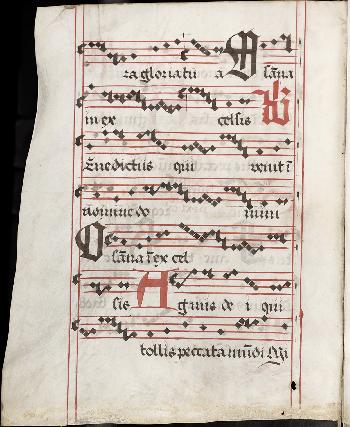 ra gloria tu a O sāna
in ex celsis B
enedictus qui venit ī
nomine do mini
O sāna ī ex cel
sis A gnus de i qui
tollis peccata mūdi Mi